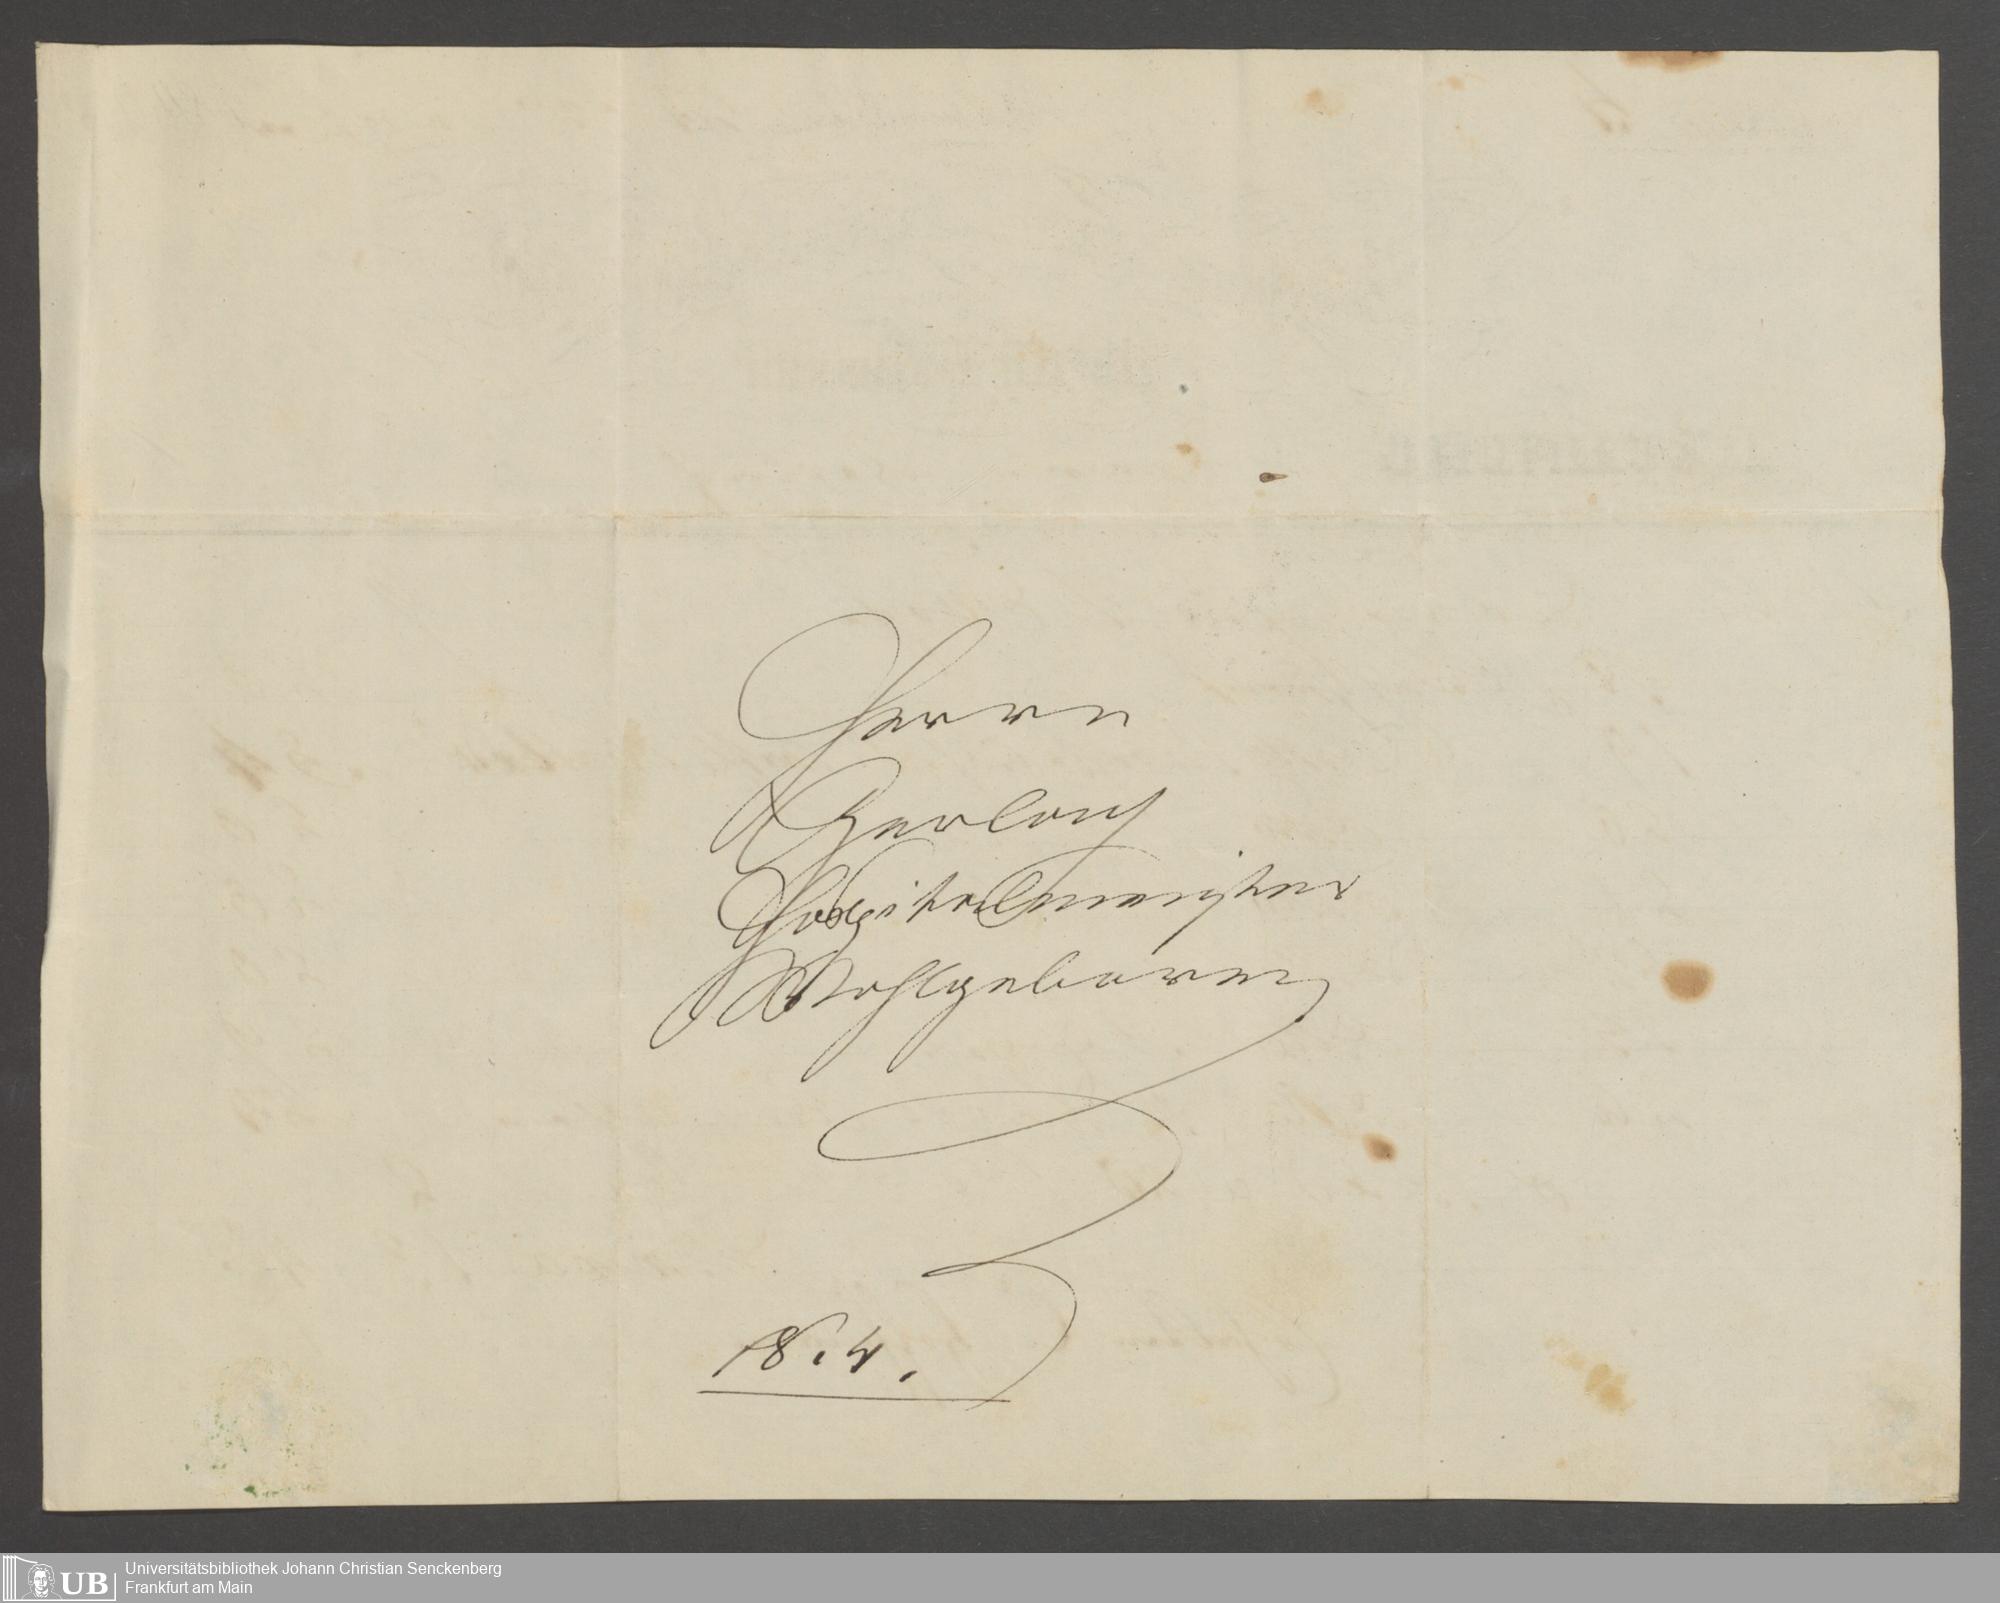 Herrn
Gerlach
Hospitalmeister
Wohlgeboren
18.4.
Universitätsbibliothek Johann Christian Senckenberg
Frankfurt am Main
UB